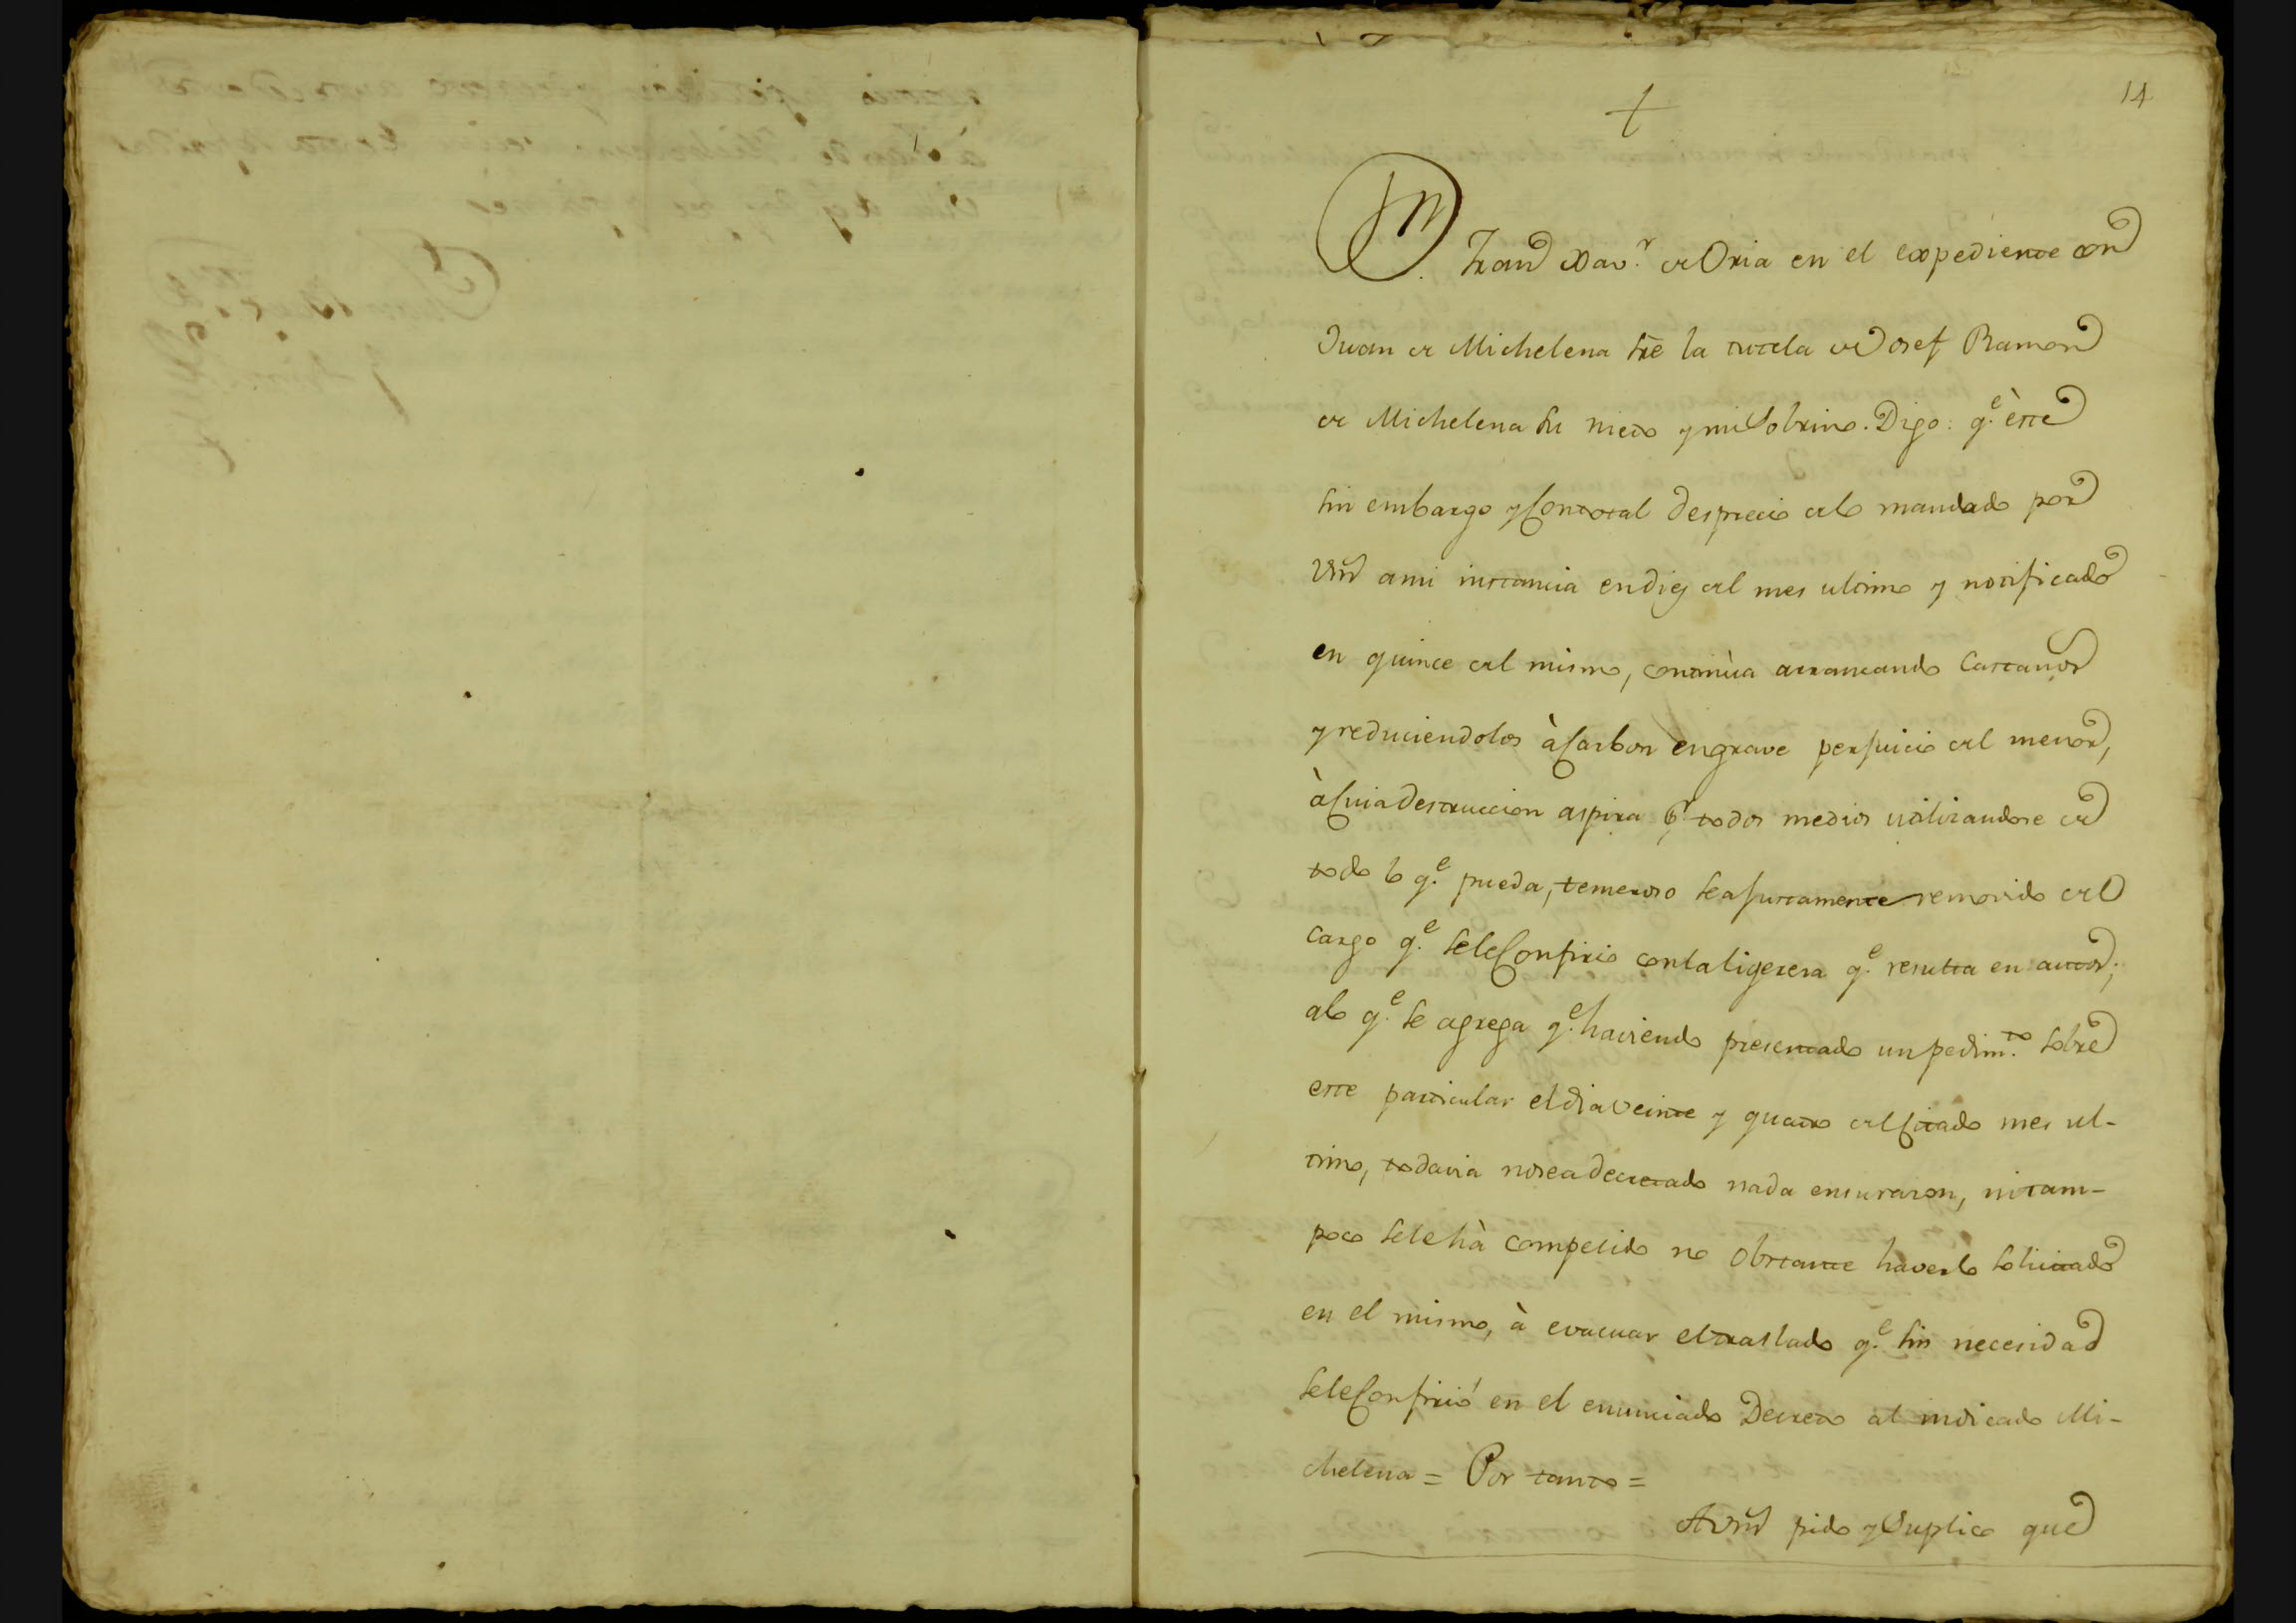 14
Fran.co Xav.r de Oria en el expediente con
Juan de Michelena sre la tutela de Josef Ramon
de Michelena su nieto y mi Sobrino. Digo: q.e èste
sin embargo y Con total desprecio de lo mandado por
Vm a mi instancia en diez del mes ultimo y notificado
en quince del mismo, continùa arrancando Castaños
y reduciendolos à Carbon en grave perjuicio del menor,
à Cuia destruccion aspira pr todos medios utilizandose de
todo lo q.e pueda, temeroso sea justamente removido del
cargo q.e se le Confirio con la ligereza q.e resulta en autos;
a lo q.e se agrega q.e haviendo presentado un pedim.to sobre
este particular el dia veinte y quatro del Citado mes ul-
timo, todavia no se a decretado nada en su razon, ni tam-
poco se le hà compelido no obstante haverlo solicitado
en el mismo, à evacuar el traslado q.e sin necesidad
se le Confirió en el enunciado Decreto al indicado Mi-
chelena = Por tanto =
A Vm pido y Suplico que